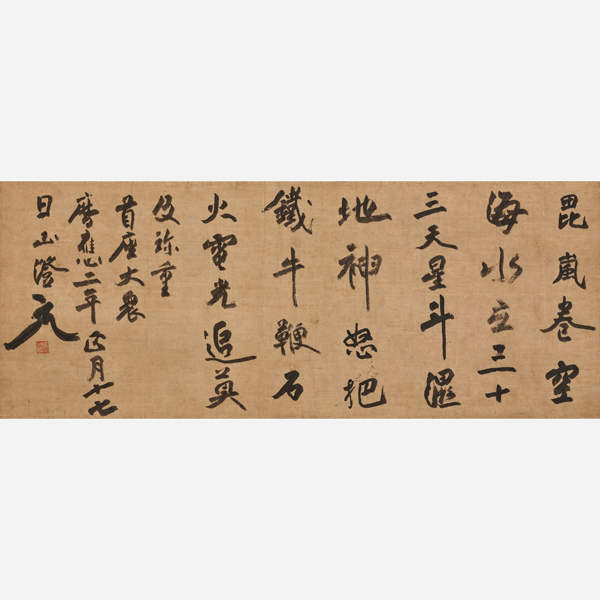 毘嵐卷空
海水立三十
三天星斗濕
地神怒把
鐵牛鞭石
火電光追莫
及珍重
首座大衆
暦應二年正月十七
日正澄